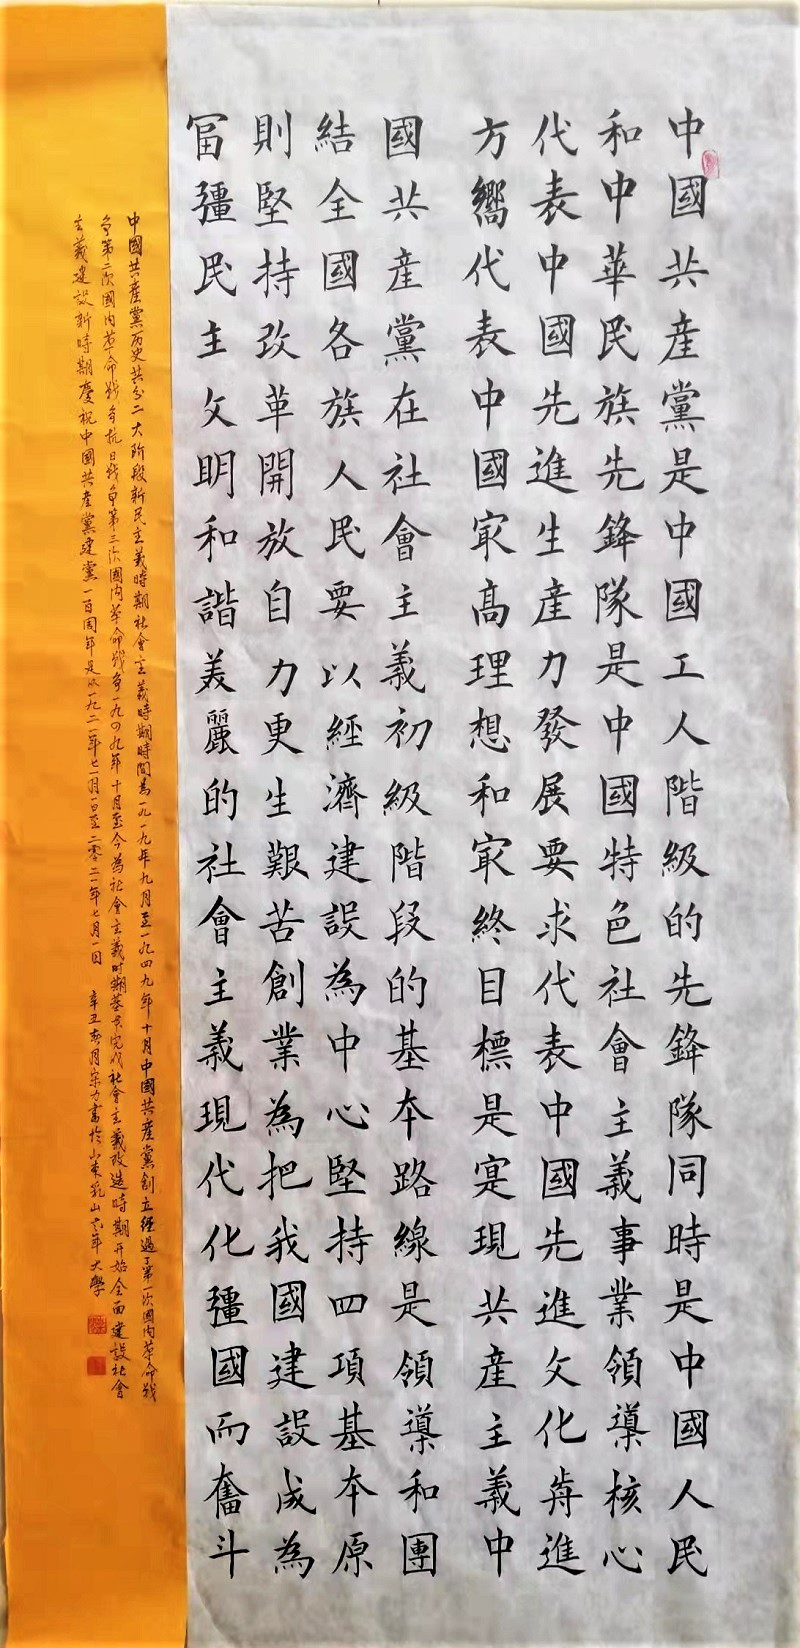 中國共産黨是中國工人階級的先鋒隊同時是中國人民
和中華民族先鋒隊是中國特色社會主義事業領導核心
代表中國先進生産力發展要求代表中國先進文化歬進
方嚮代表中國冣高理想和冣終目標是寔現共産主義中
國共産黨在社會主義初級階段的基本路線是領導和團
結全國各族人民要以經濟建設為中心堅持四項基本原
則堅持改革開放自力更生艱苦創業為把我國建設成為
冨彊民主文明和諧美麗的社會主義現代化彊國而奮斗
中國共産黨历史共分二大阶段新民主義時期社會主義時期時間為一九一九年九月至一九四九年十月中國共産黨創立經過了第一次國内革命战
争第二次國内革命战争抗日战争第三次國内革命战争一九四九年十月至今為社會主義时期基本完成社會主義改造時期开始全面建設社會
主義建設新時期慶祝中國共産黨建黨一百周年是从一九二一年七月一日至二零二一年七月一日 辛丑 月宋力書於山東乳山老年大學